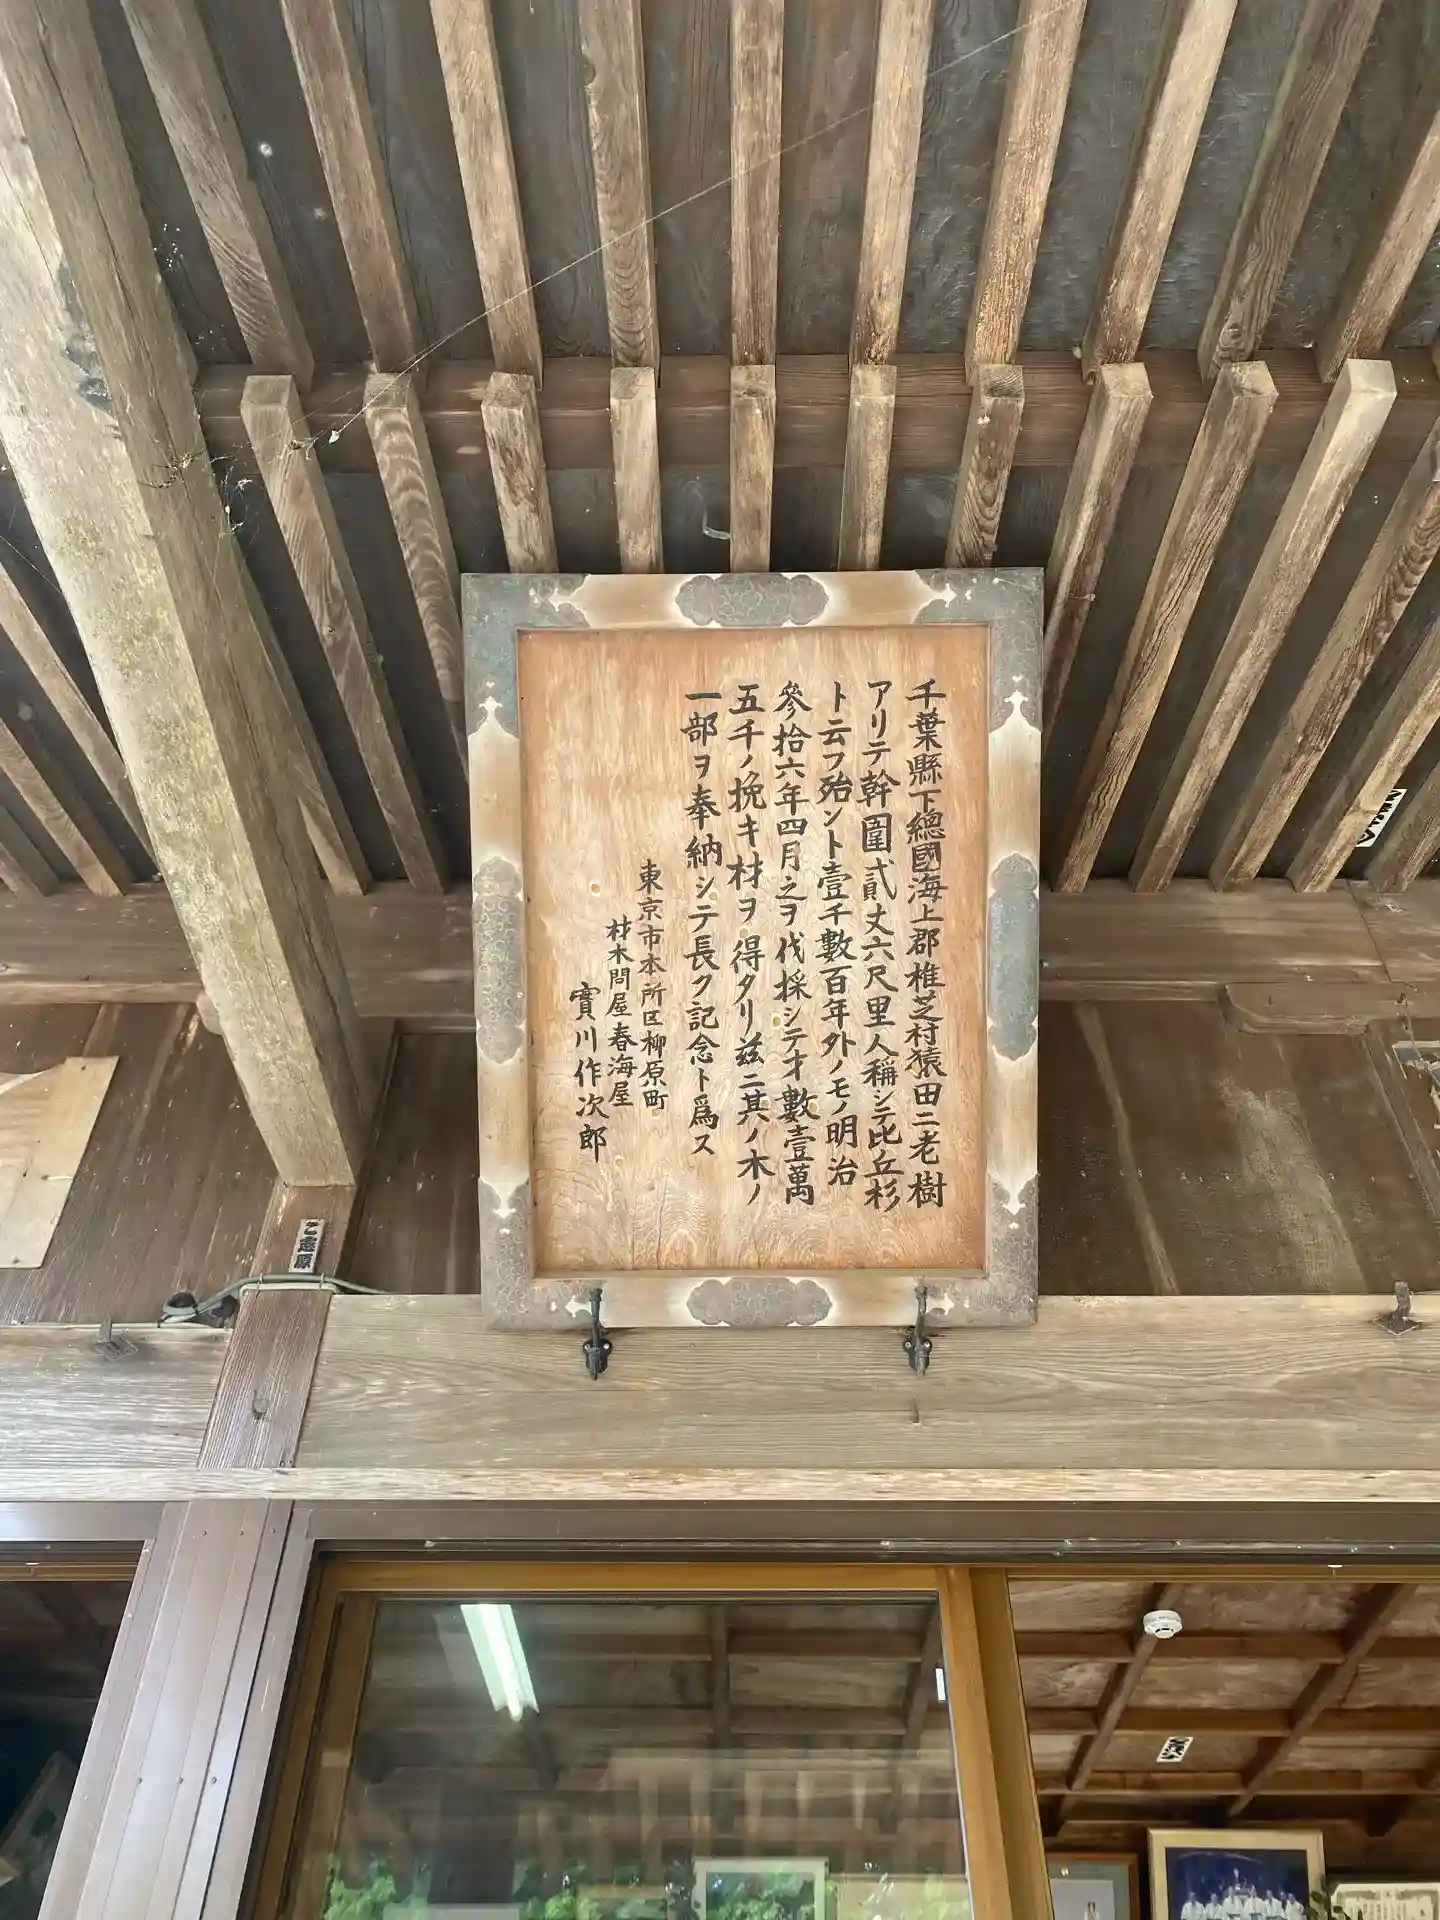 千葉縣下總國海上郡椎芝村猿田ニ老樹
アリテ幹圍貳丈六尺里人稱シテ比丘杉
ト云フ殆ント壹千數百年外ノモノ明治
參拾六年四月之ヲ伐採シテ才數壹萬
五千ノ挽キ材ヲ得タリ兹ニ其ノ木ノ
一部ヲ奉納シテ長ク記念ト爲ス
東京市本所区柳原町
材木問屋春海屋
實川作次郎